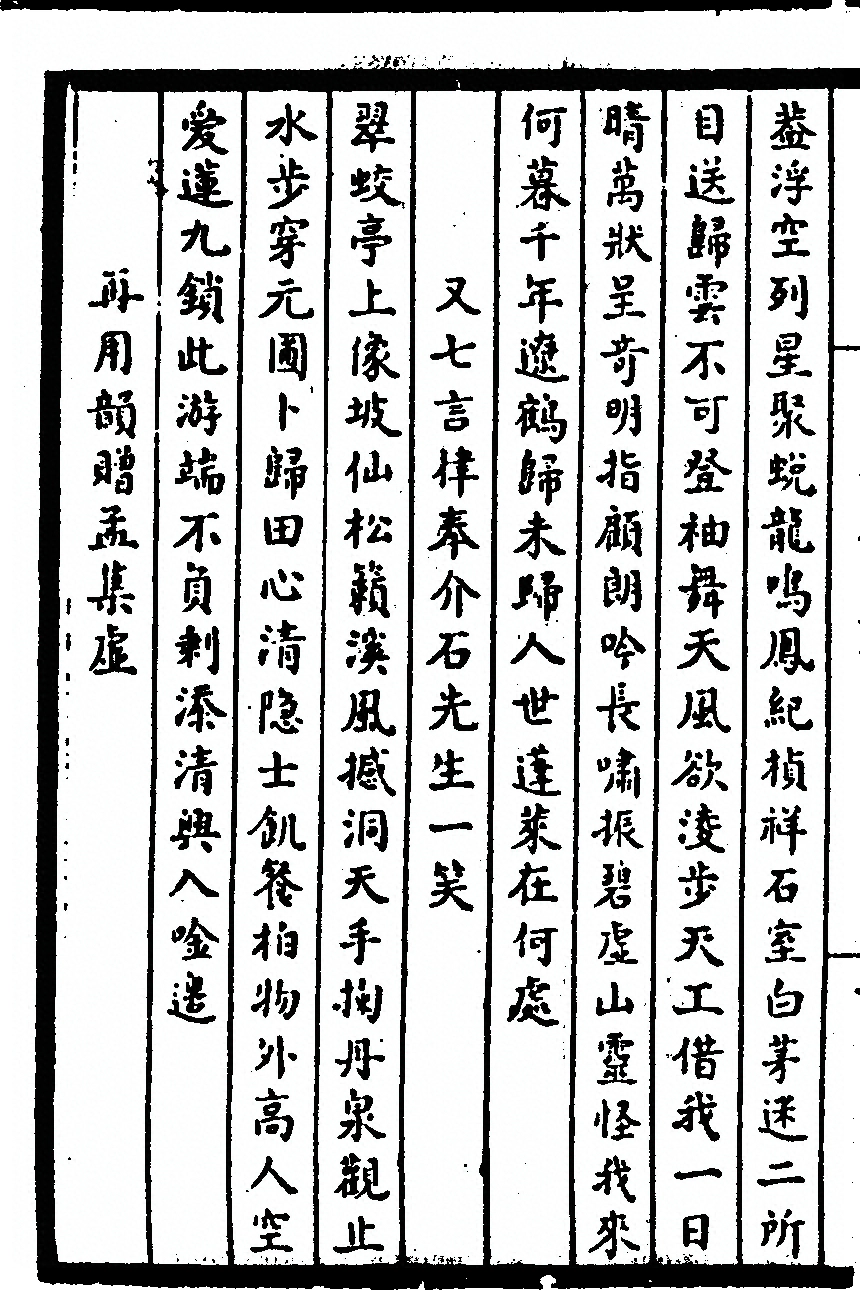 葢浮空列星聚蜕龍鳴鳳紀楨祥石室白茅迷二所
目送歸雲不可登袖舞天風欲淩步天工借我一日
晴萬狀呈奇明指顧朗吟長嘯振碧虛山靈怪我來
何暮千年遼鶴歸未歸人世蓬萊在何處
又七言律奉介石先生一笑
翠蛟亭上像坡仙松籟溪風撼洞天手掬丹泉觀止
水步穿元圃卜歸田心清隐士飢餐柏物外高人空
愛蓮九鎖此游端不負剩添清興入唫邊
再用韻贈孟集虛